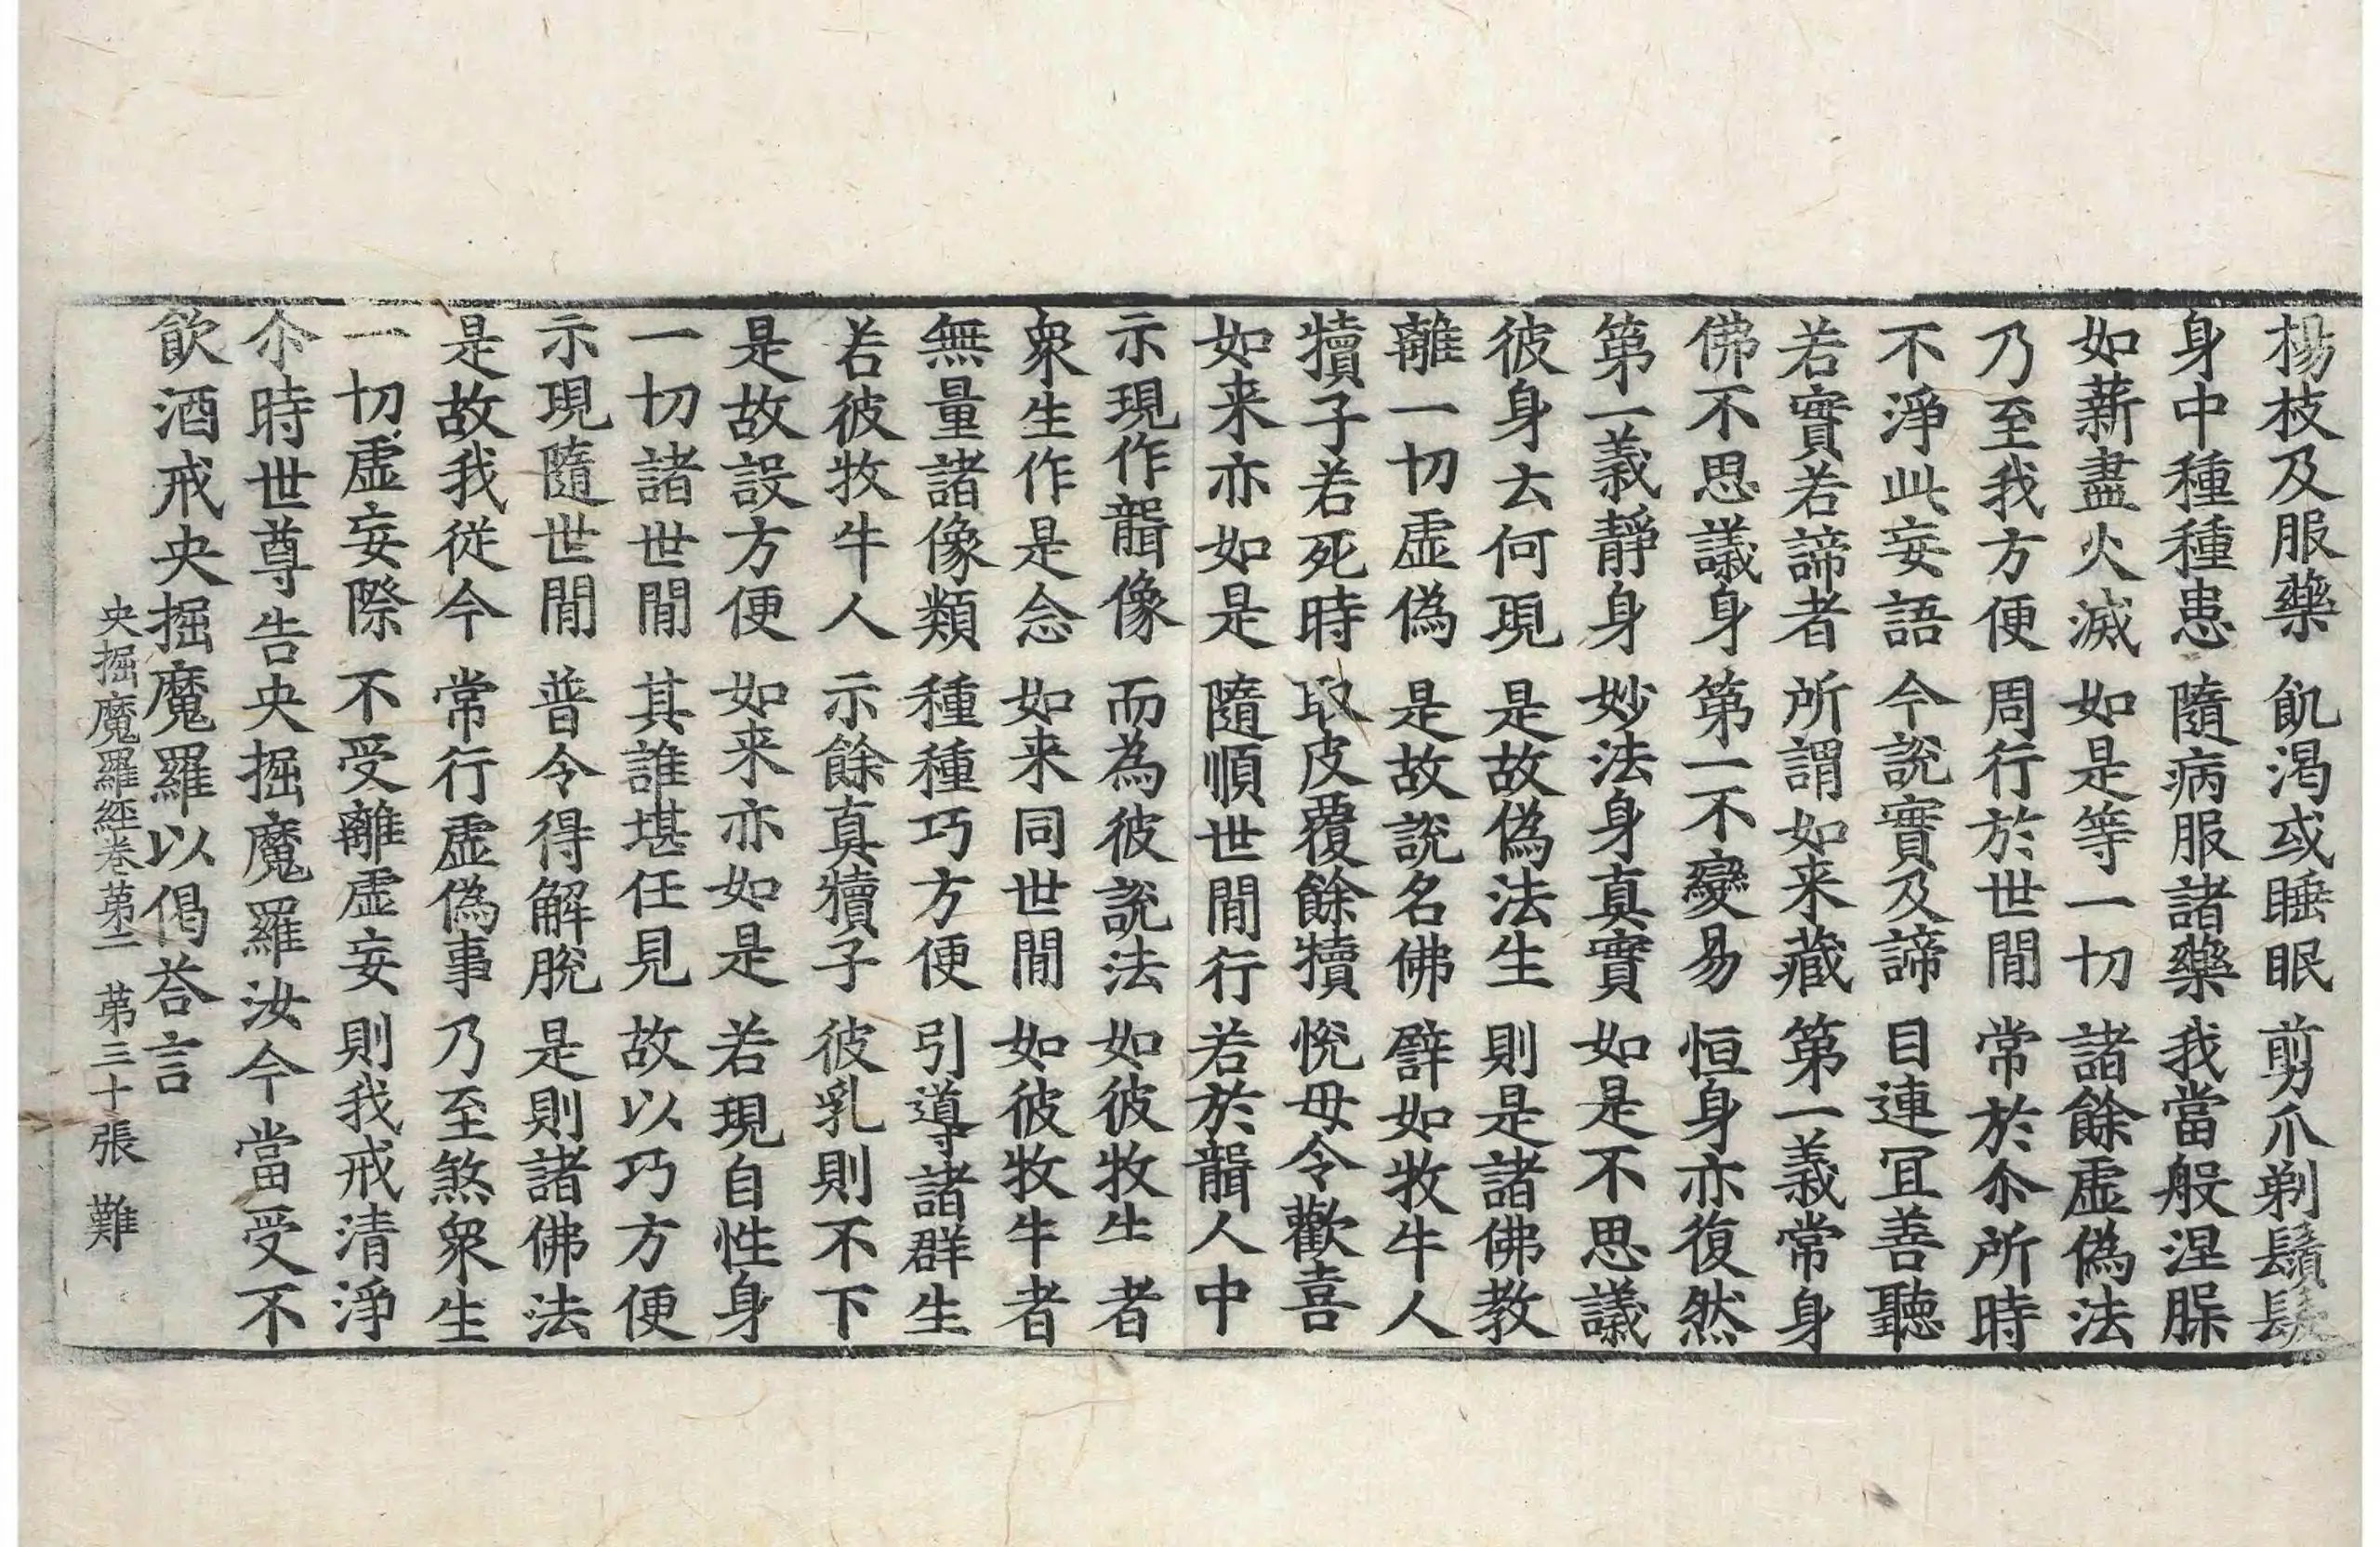 楊枝及服藥 飢渴或睡眠 剪爪剃鬚髮
身中種種患 隨病服諸藥 我當般涅槃
如薪盡火滅 如是等一切 諸餘虛偽法
乃至我方便 周行於世間 常於尒所時
不淨此妄語 今說實及諦 目連冝善聽
若實若諦者 所謂如来藏 第一義常身
佛不思議身 第一不變易 恒身亦復然
第一義靜身 妙法身真實 如是不思議
彼身云何現 是故偽法生 則是諸佛教
離一切虛偽 是故說名佛 譬如牧牛人
犢子若死時 取皮覆餘犢 悅母令歡喜
如来亦如是 隨順世間行 若於聾人中
示現作聾像 而為彼說法 如彼牧牛者
衆生作是念 如来同世間 如彼牧牛者
無量諸像類 種種巧方便 引導諸群生
若彼牧牛人 示餘真犢子 彼乳則不下
是故設方便 如来亦如是 若現自性身
一切諸世間 其誰堪任見 故以巧方便
示現隨世間 普令得解脫 是則諸佛法
是故我從今 常行虛偽事 乃至煞衆生
一切虛妄際 不受離虛妄 則我戒清淨
尒時世尊告央掘魔羅汝今當受不
飲酒戒央掘魔羅以偈荅言
央掘魔羅經卷第二 第三十張 難